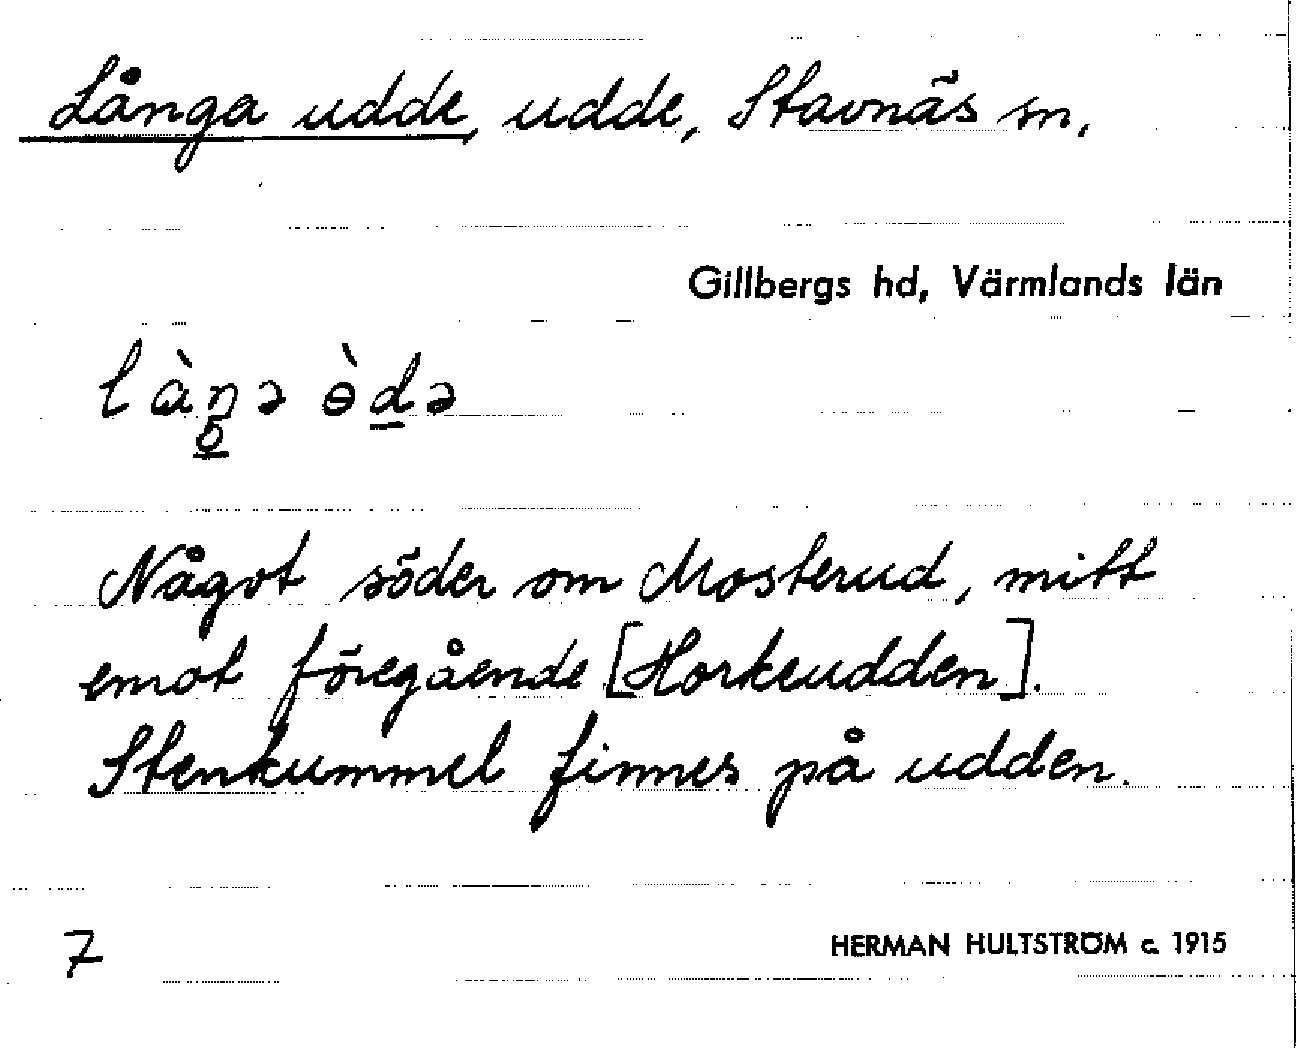 Långa udde, udde, Stavnäs sn,
Gillbergs hd, Värmlands län
Något söder om Mosterud, mitt
emot föregående [Horkeudden].
Stenkummel finnes på udden.
7 HERMAN HULTSTRÖM c. 1915